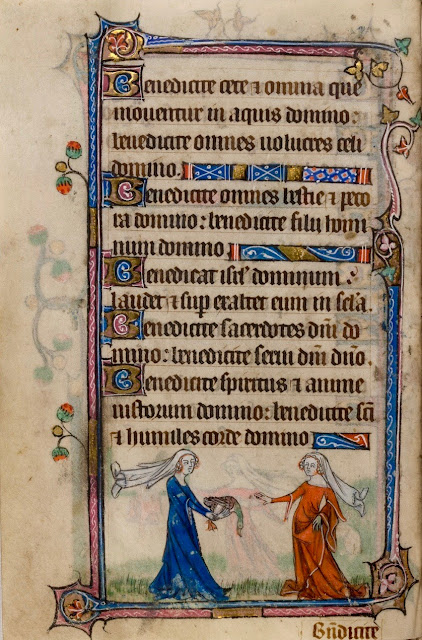 Benedicite cete ⁊ omnia que
moventur in aquis domino:
benedicite omnes uolucres celi
domino.
Benedicite omnes bestie ⁊ peco
ra domino: benedicite filii homi
num domino
Benedicat isrl' dominum:
laudet ⁊ sup exaltet eum in scla.
Benedicite sacerdotes dñi do
mino: benedicite serui dñi dño.
Benedicite spiritus ⁊ anime
iustorum domino: benedicite sci
⁊ humiles corde domino
Bñdicite